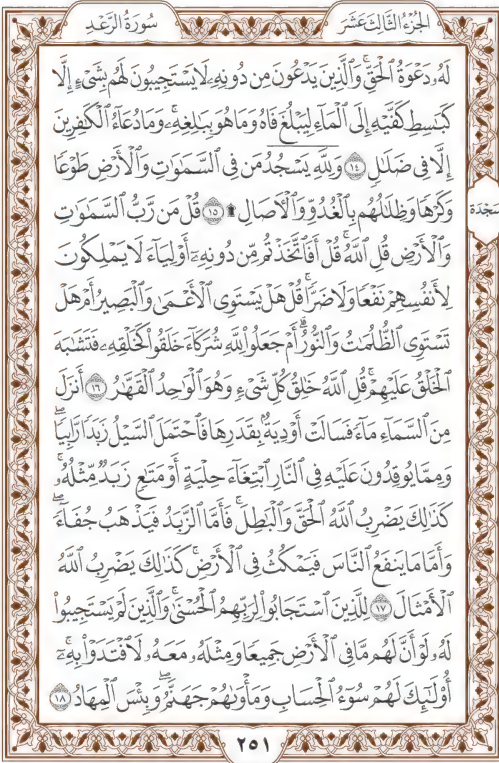 الجزء الثالث عشر
سورة الرعد
لَهُۥ دَعْوَةُ ٱلْحَقِّ ۖ وَٱلَّذِينَ يَدْعُونَ مِن دُونِهِۦ لَا يَسْتَجِيبُونَ لَهُم بِشَىْءٍ إِلَّا
كَبَـٰسِطِ كَفَّيْهِ إِلَى ٱلْمَآءِ لِيَبْلُغَ فَاهُ وَمَا هُوَ بِبَـٰلِغِهِۦ ۚ وَمَا دُعَآءُ ٱلْكَـٰفِرِينَ
إِلَّا فِى ضَلَـٰلٍ ۝١٤ وَلِلَّهِ يَسْجُدُ مَن فِى ٱلسَّمَـٰوَٰتِ وَٱلْأَرْضِ طَوْعًا
وَكَرْهًا وَظِلَـٰلُهُم بِٱلْغُدُوِّ وَٱلْـَٔاصَالِ ۩ ۝١٥ قُلْ مَن رَّبُّ ٱلسَّمَـٰوَٰتِ
سجدة
وَٱلْأَرْضِ قُلِ ٱللَّهُ ۚ قُلْ أَفَٱتَّخَذْتُم مِّن دُونِهِۦٓ أَوْلِيَآءَ لَا يَمْلِكُونَ
لِأَنفُسِهِمْ نَفْعًا وَلَا ضَرًّا ۚ قُلْ هَلْ يَسْتَوِى ٱلْأَعْمَىٰ وَٱلْبَصِيرُ أَمْ هَلْ
تَسْتَوِى ٱلظُّلُمَـٰتُ وَٱلنُّورُ ۗ أَمْ جَعَلُوا۟ لِلَّهِ شُرَكَآءَ خَلَقُوا۟ كَخَلْقِهِۦ فَتَشَـٰبَهَ
ٱلْخَلْقُ عَلَيْهِمْ ۚ قُلِ ٱللَّهُ خَـٰلِقُ كُلِّ شَىْءٍ وَهُوَ ٱلْوَٰحِدُ ٱلْقَهَّـٰرُ ۝١٦ أَنزَلَ
مِنَ ٱلسَّمَآءِ مَآءً فَسَالَتْ أَوْدِيَةٌۢ بِقَدَرِهَا فَٱحْتَمَلَ ٱلسَّيْلُ زَبَدًا رَّابِيًا ۚ
وَمِمَّا يُوقِدُونَ عَلَيْهِ فِى ٱلنَّارِ ٱبْتِغَآءَ حِلْيَةٍ أَوْ مَتَـٰعٍ زَبَدٌ مِّثْلُهُۥ ۚ
كَذَٰلِكَ يَضْرِبُ ٱللَّهُ ٱلْحَقَّ وَٱلْبَـٰطِلَ ۚ فَأَمَّا ٱلزَّبَدُ فَيَذْهَبُ جُفَآءً ۖ
وَأَمَّا مَا يَنفَعُ ٱلنَّاسَ فَيَمْكُثُ فِى ٱلْأَرْضِ ۚ كَذَٰلِكَ يَضْرِبُ ٱللَّهُ
ٱلْأَمْثَالَ ۝١٧ لِلَّذِينَ ٱسْتَجَابُوا۟ لِرَبِّهِمُ ٱلْحُسْنَىٰ ۚ وَٱلَّذِينَ لَمْ يَسْتَجِيبُوا۟
لَهُۥ لَوْ أَنَّ لَهُم مَّا فِى ٱلْأَرْضِ جَمِيعًا وَمِثْلَهُۥ مَعَهُۥ لَٱفْتَدَوْا۟ بِهِۦٓ ۚ
أُو۟لَـٰٓئِكَ لَهُمْ سُوٓءُ ٱلْحِسَابِ وَمَأْوَىٰهُمْ جَهَنَّمُ ۖ وَبِئْسَ ٱلْمِهَادُ ۝١٨
٢٥١